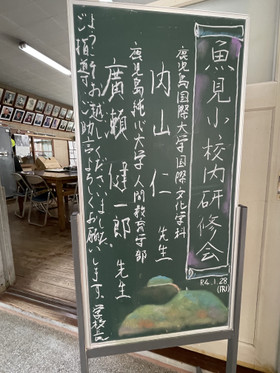 魚見小校内研修会
R4.1.28
(FRI)
鹿児島国際大学国際文化学科
内山 仁 先生
鹿児島純心大学人間教育学部
廣瀬 健一郎 先生
ようこそお越しくださいました。
ご指導ご助言よろしくお願いします。学校長